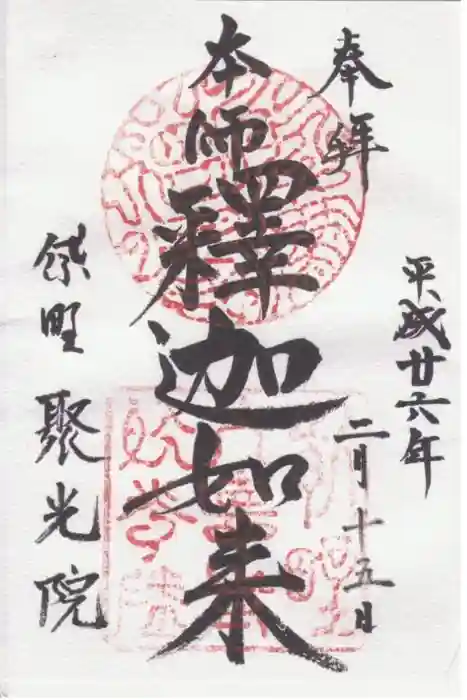 奉拜
平成廿六年
二月十五日
本師釋迦如来
聚光院